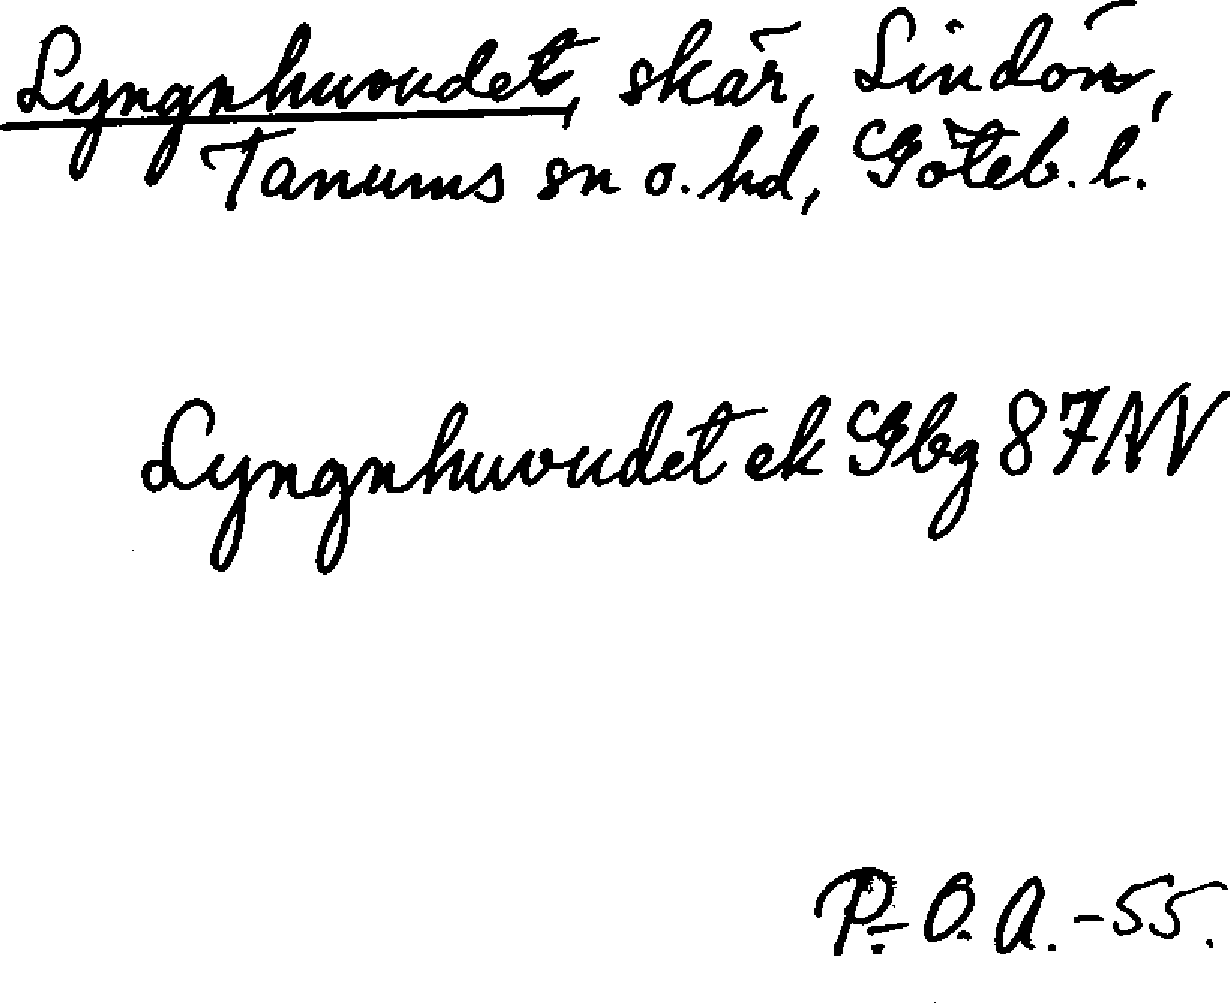 Lyngnhuvudet, skär, Lindön,
Tanums sn o. hd, Göteb. l.
Lyngnhuvudet ek Gbg 87 NV
P.-O. A. -55.